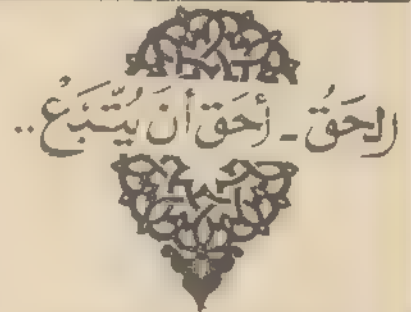 الحَقُ - أحَق أنَ يُتّبَعْ..